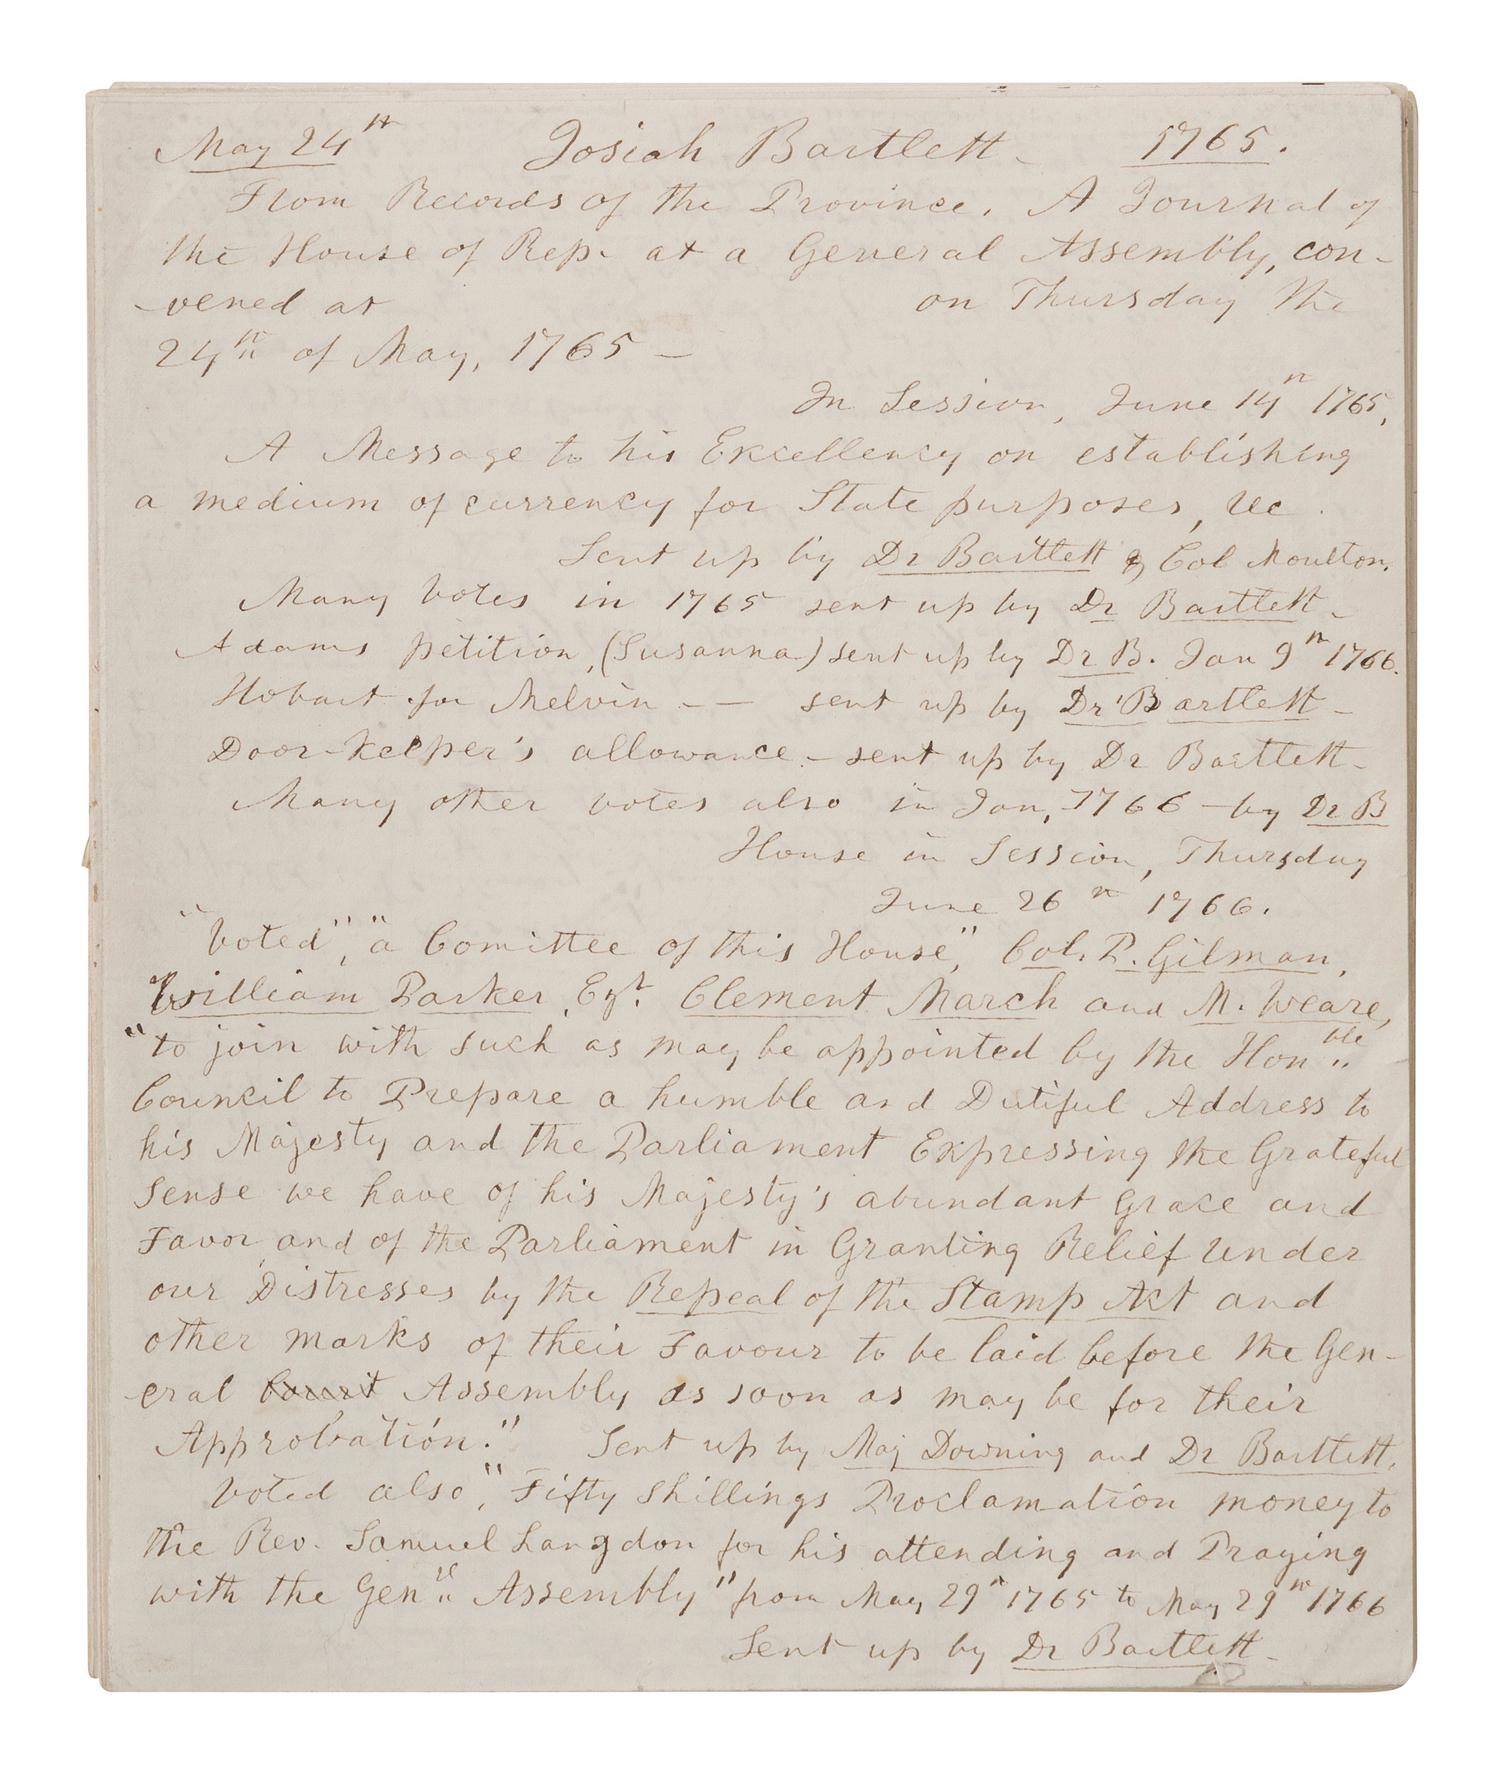 May 24th Josiah Bartlett - 1765.
From Records of the Province. A Journal of
the House of Rep. at a General Assembly, con-
-vened at on Thursday the
24th of May, 1765 -
In Session, June 14th 1765,
A Message to his Excellency on establishing
a medium of currency for State purposes, &c.
Sent up by Dr Bartlett & Col Moulton.
Many votes in 1765 sent up by Dr Bartlett -
Adams petition, (Susanna) sent up by Dr B. Jan 9th 1766.
Hobart for Melvin - - sent up by Dr Bartlett -
Door-Keeper's allowance - sent up by Dr Bartlett -
Many other votes also in Jan, 1766 - by Dr B
House in Session, Thursday
June 26th 1766.
"Voted", "a Comittee of this House," Col. P. Gilman,
William Parker, Eqr. Clement March and M. Weare,
"to join with such as may be appointed by the Honble
Council to Prepare a humble and Dutiful Address to
his Majesty and the Parliament Expressing the Grateful
Sense we have of his Majesty's abundant Grace and
Favor and of the Parliament in Granting Relief under
our Distresses by the Repeal of the Stamp Act and
other marks of their Favour to be laid before the Gen-
-eral Court Assembly as soon as may be for their
Approbation." Sent up by Maj Downing and Dr Bartlett.
Voted also, "Fifty Shillings Proclamation money to
the Rev. Samuel Langdon for his attending and Praying
with the Genll Assembly" from May 29th 1765 to May 29th 1766
Sent up by Dr Bartlett -